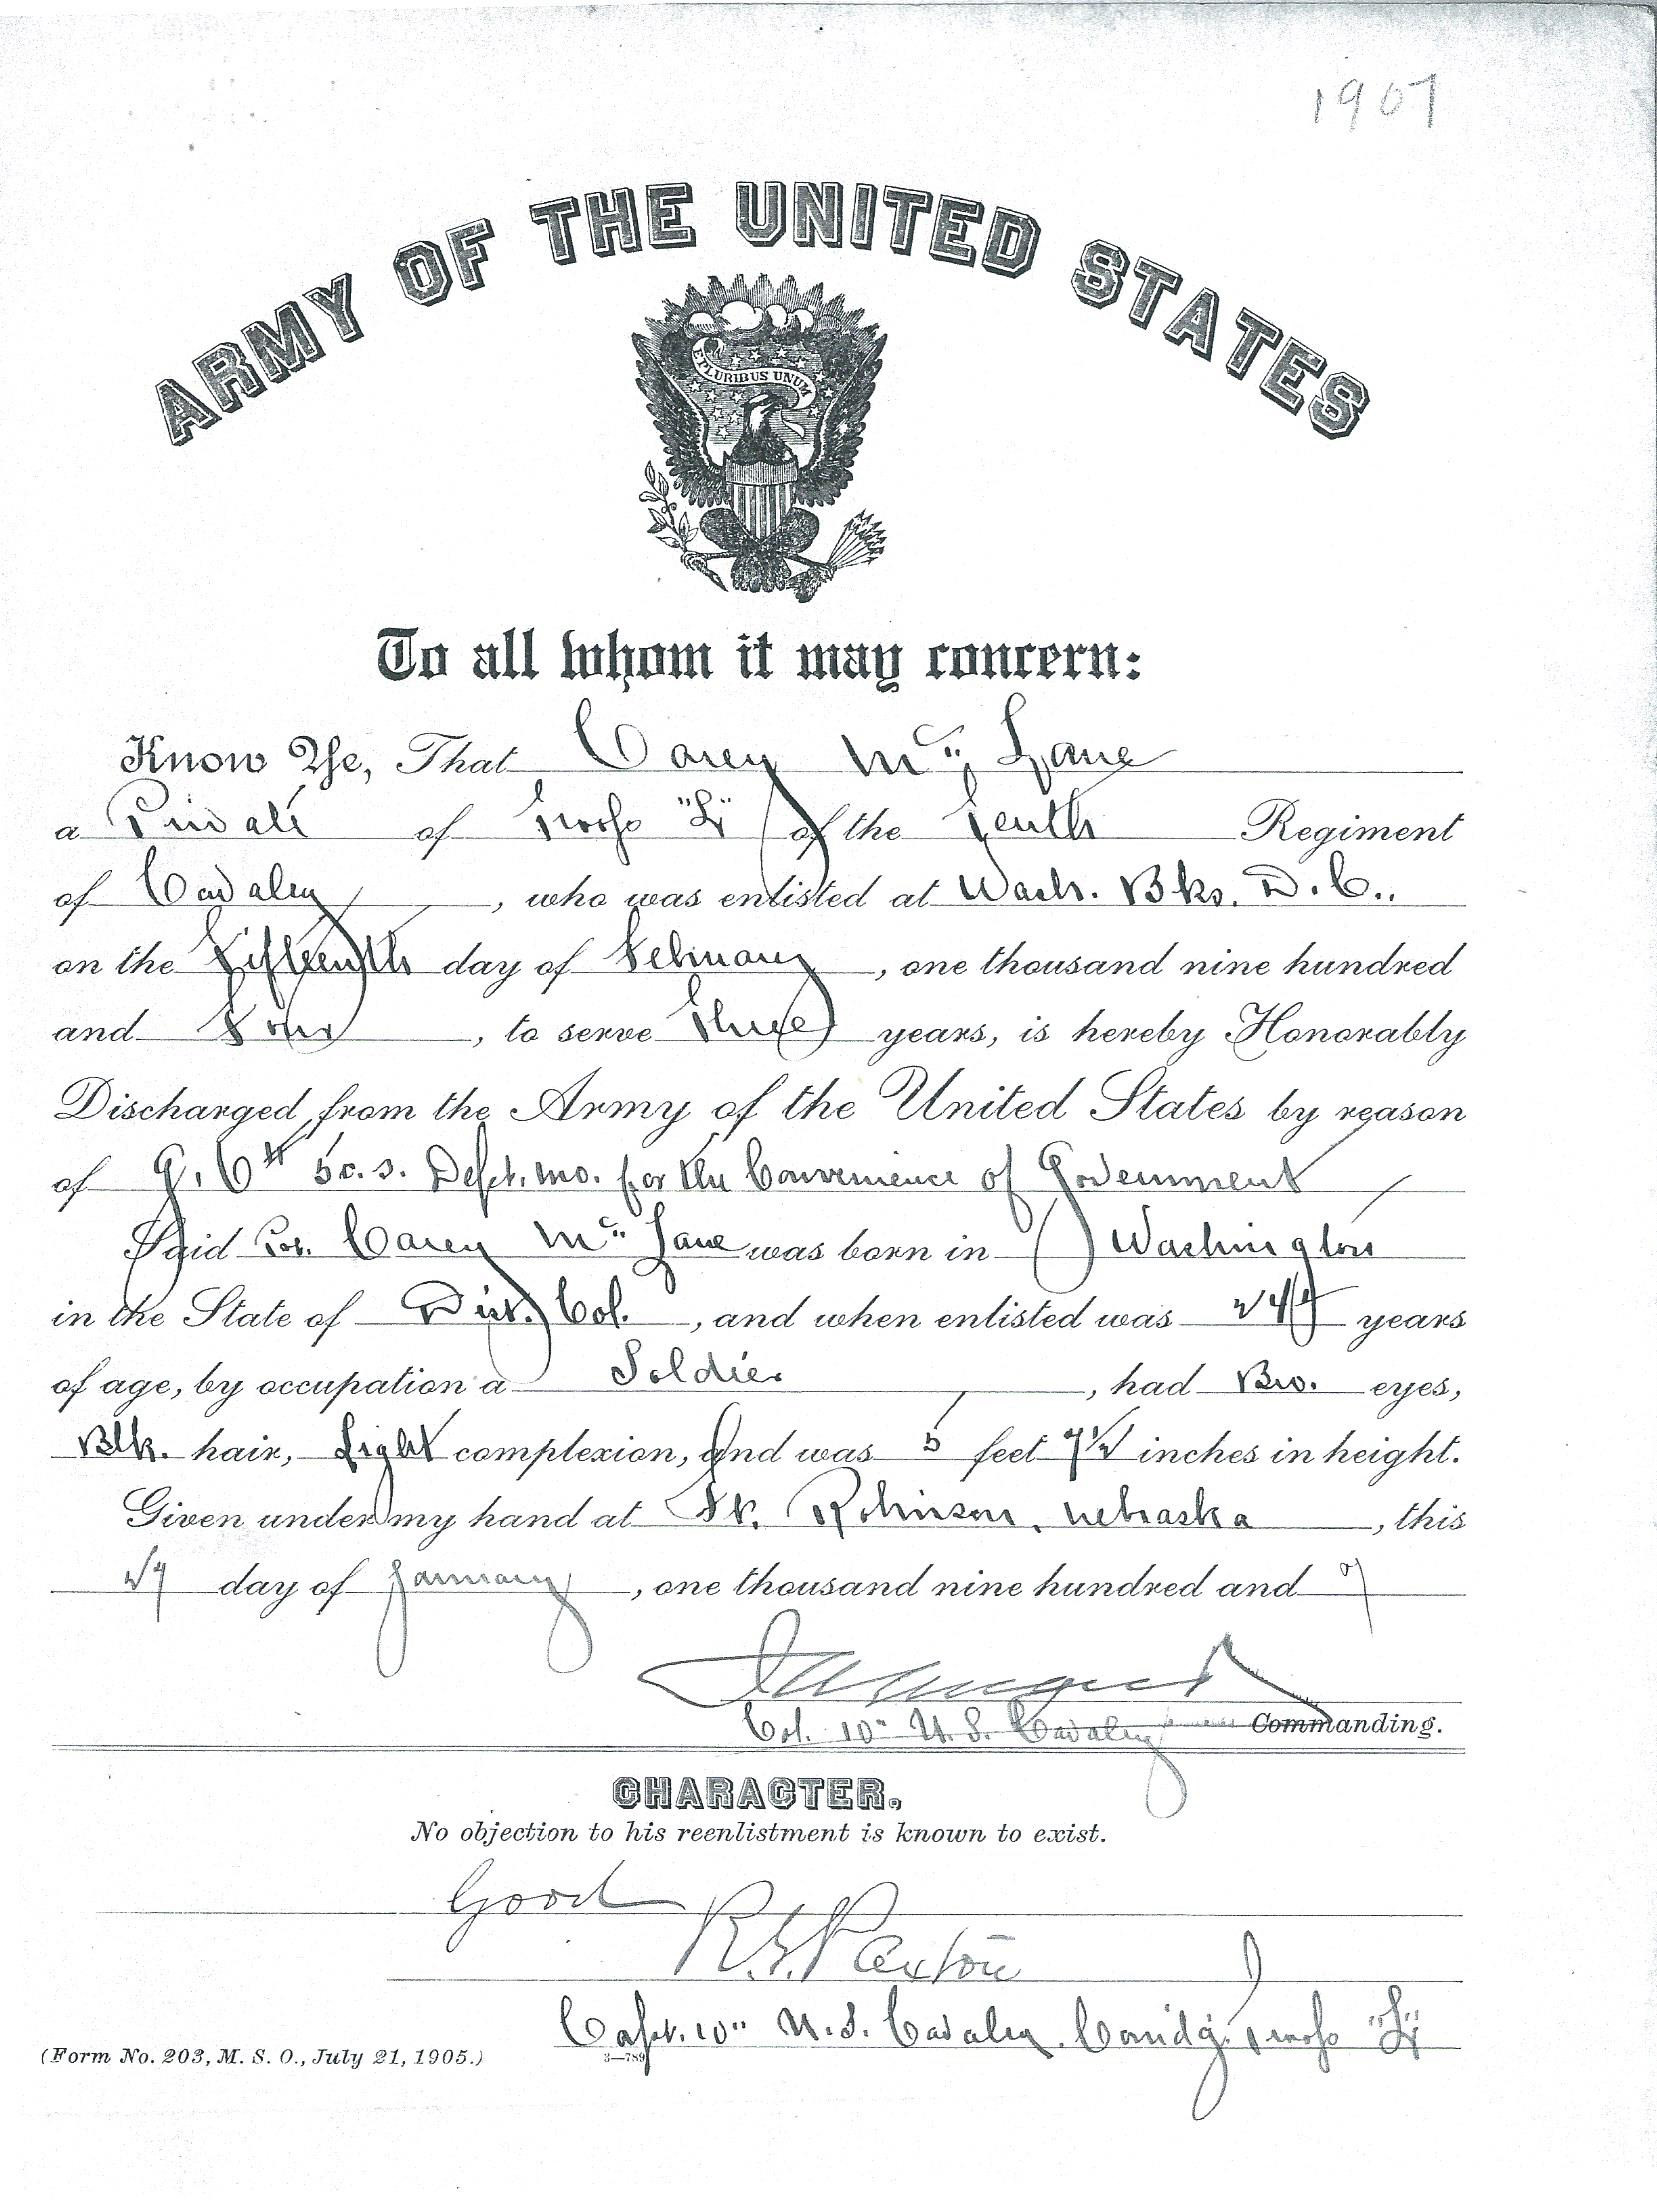 1907
ARMY OF THE UNITED STATES
E PLURIBUS UNUM
To all whom it may concern:
Know Ye, That Carey Mc Lane
a Private of Troop "L" of the Tenth Regiment
of Cavalry, who was enlisted at Wash. Bks. D.C.,
on the Fifteenth day of February, one thousand nine hundred
and Four, to serve Three years, is hereby Honorably
Discharged from the Army of the United States by reason
of Dept. mo. for the Convenience of Government
Said Carey Mc Lane was born in Washington
in the State of Dist. Col., and when enlisted was years
of age, by occupation a Soldier, had Bro. eyes,
Blk. hair, Light complexion, and was 5 feet inches in height.
Given under my hand at Ft. Robinson, Nebraska, this
27 day of January, one thousand nine hundred and 07
Col. 10" U.S. Cavalry Commanding.
CHARACTER.
No objection to his reenlistment is known to exist.
Good
Paxton
Capt. 10" U.S. Cavalry. Comdg. Troop "L"
(Form No. 203, M. S. O., July 21, 1905.)
3—789